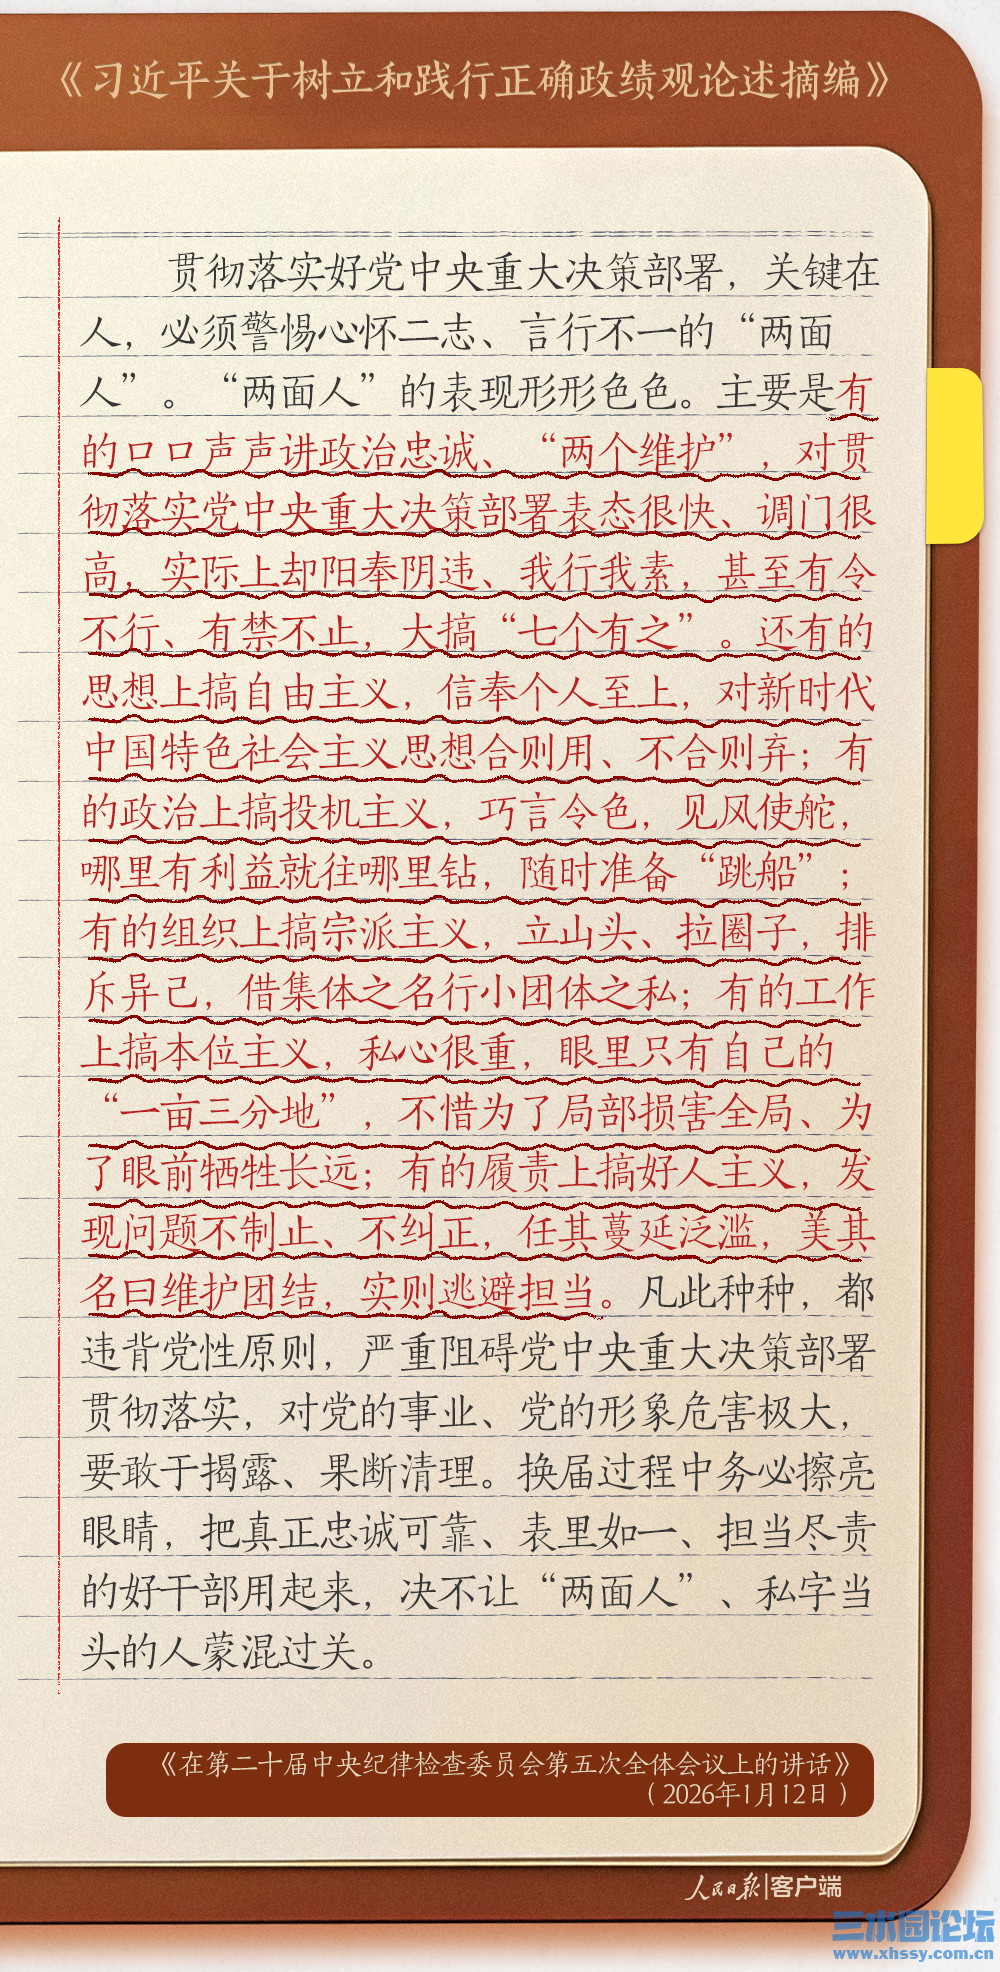 《习近平关于树立和践行正确政绩观论述摘编》
贯彻落实好党中央重大决策部署，关键在
人，必须警惕心怀二志、言行不一的“两面
人”。“两面人”的表现形形色色。主要是有
的口口声声讲政治忠诚、“两个维护”，对贯
彻落实党中央重大决策部署表态很快、调门很
高，实际上却阳奉阴违、我行我素，甚至有令
不行、有禁不止，大搞“七个有之”。还有的
思想上搞自由主义，信奉个人至上，对新时代
中国特色社会主义思想合则用、不合则弃；有
的政治上搞投机主义，巧言令色，见风使舵，
哪里有利益就往哪里钻，随时准备“跳船”；
有的组织上搞宗派主义，立山头、拉圈子，排
斥异己，借集体之名行小团体之私；有的工作
上搞本位主义，私心很重，眼里只有自己的
“一亩三分地”，不惜为了局部损害全局、为
了眼前牺牲长远；有的履责上搞好人主义，发
现问题不制止、不纠正，任其蔓延泛滥，美其
名曰维护团结，实则逃避担当。凡此种种，都
违背党性原则，严重阻碍党中央重大决策部署
贯彻落实，对党的事业、党的形象危害极大，
要敢于揭露、果断清理。换届过程中务必擦亮
眼睛，把真正忠诚可靠、表里如一、担当尽责
的好干部用起来，决不让“两面人”、私字当
头的人蒙混过关。
《在第二十届中央纪律检查委员会第五次全体会议上的讲话》
（2026年1月12日）
人民日报|客户端
三水园论坛
www.xhssy.com.cn